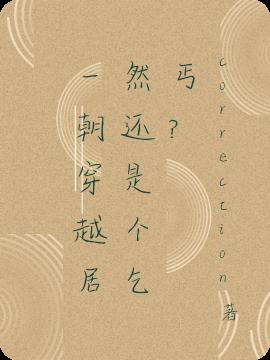 一朝穿越居
然还是个乞
丐？
correction 著